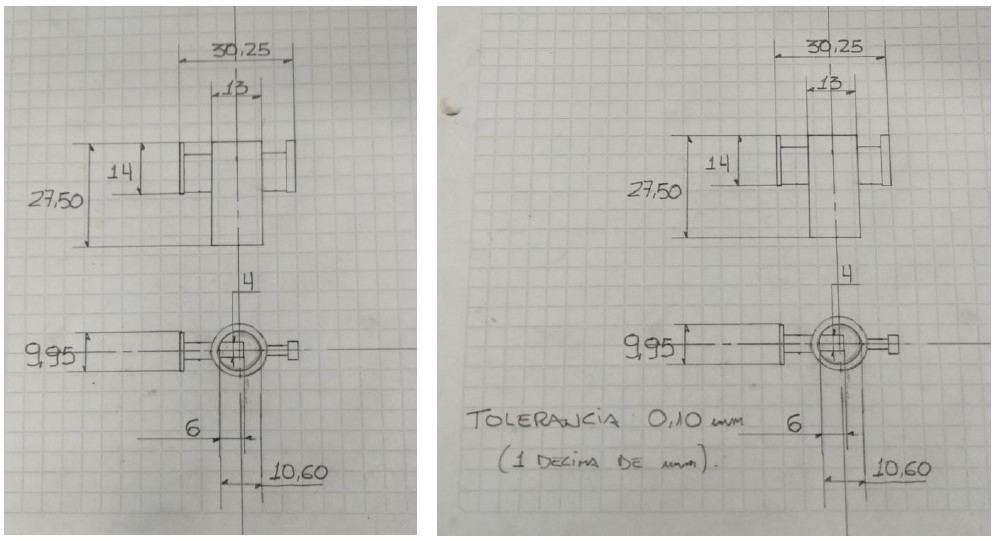 30,25
13
14
27,50
4
9,95
6
10,60
30,25
13
14
27,50
4
9,95
TOLERANCIA 0,10 mm
6
(1 DECIMA DE mm).
10,60